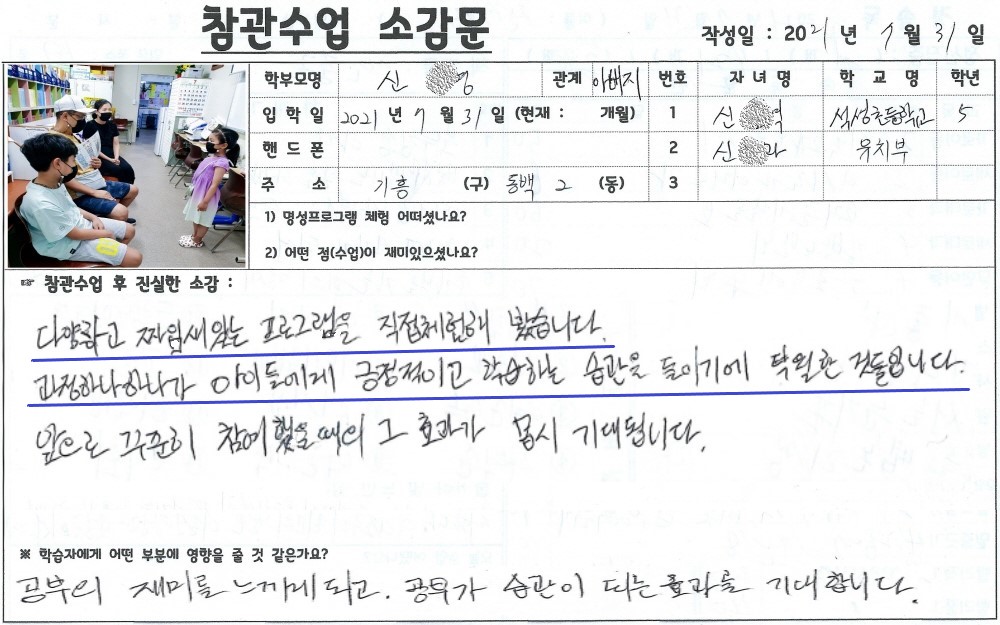 참관수업 소감문
작성일 : 2021 년 7 월 31 일
학부모명 신 영 관계 아버지 번호 자 녀 명 학 교 명 학년
입 학 일 2021 년 7 월 31 일 (현재 : 개월) 1 신 혁 석성초등학교 5
핸 드 폰 2 신 라 유치부
주 소 기흥 (구) 동백 2 (동) 3
1) 명성프로그램 체험 어떠셨나요?
2) 어떤 점(수업)이 재미있으셨나요?
☞ 참관수업 후 진실한 소감 :
다양하고 짜임새있는 프로그램을 직접체험해 봤습니다.
과정하나하나가 아이들에게 긍정적이고 학습하는 습관을 들이기에 탁월한 것들입니다.
앞으로 꾸준히 참여했을때의 그 효과가 몹시 기대됩니다.
※ 학습자에게 어떤 부분에 영향을 줄 것 같은가요?
공부의 재미를 느끼게 되고. 공부가 습관이 되는 효과를 기대합니다.